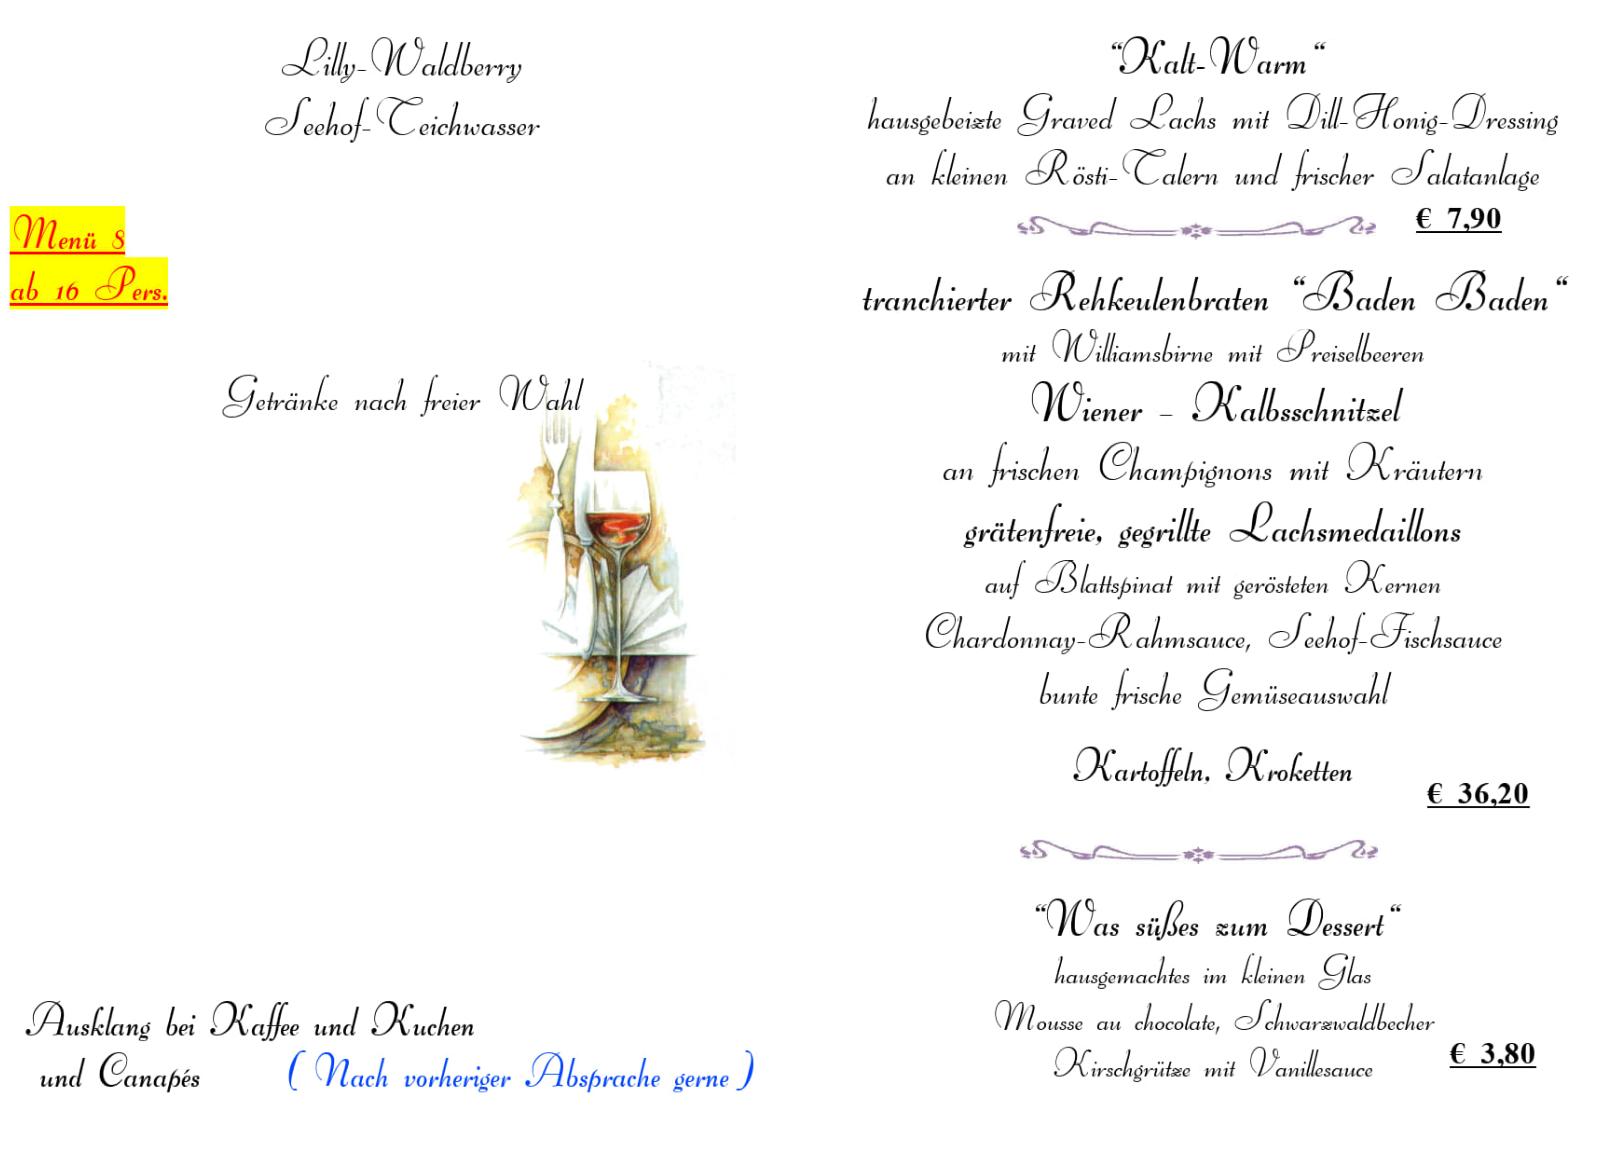 Lilly-Waldberry
Seehof-Teichwasser
Menü 8
ab 16 Pers.
Getränke nach freier Wahl
Ausklang bei Kaffee und Kuchen
und Canapés ( Nach vorheriger Absprache gerne )
“Kalt-Warm“
hausgebeizte Graved Lachs mit Dill-Honig-Dressing
an kleinen Rösti-Talern und frischer Salatanlage
€ 7,90
tranchierter Rehkeulenbraten “Baden Baden“
mit Williamsbirne mit Preiselbeeren
Wiener – Kalbsschnitzel
an frischen Champignons mit Kräutern
grätenfreie, gegrillte Lachsmedaillons
auf Blattspinat mit gerösteten Kernen
Chardonnay-Rahmsauce, Seehof-Fischsauce
bunte frische Gemüseauswahl
Kartoffeln, Kroketten
€ 36,20
“Was süßes zum Dessert“
hausgemachtes im kleinen Glas
Mousse au chocolate, Schwarzwaldbecher
Kirschgrütze mit Vanillesauce
€ 3,80